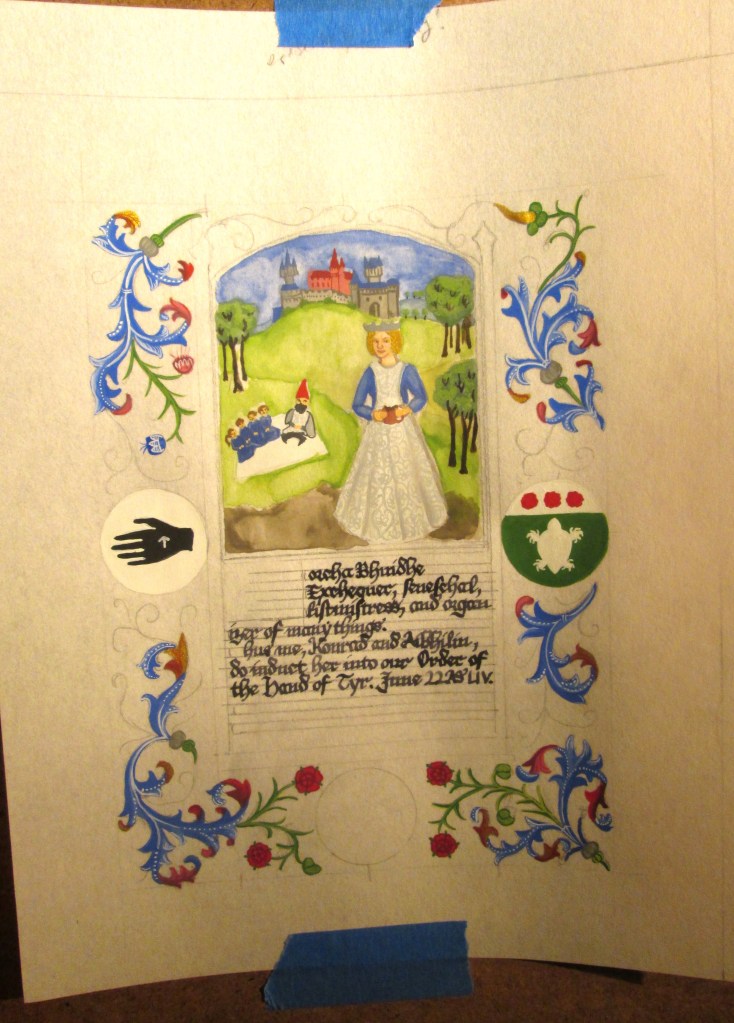 orcha Bhuidhe
Exchequer, seneschal,
listmistress, and organ
izer of many things.
hus we, Konrad and Aibhilin,
do induct her into our Order of
the Hand of Tyr. June 22 AS LIV.